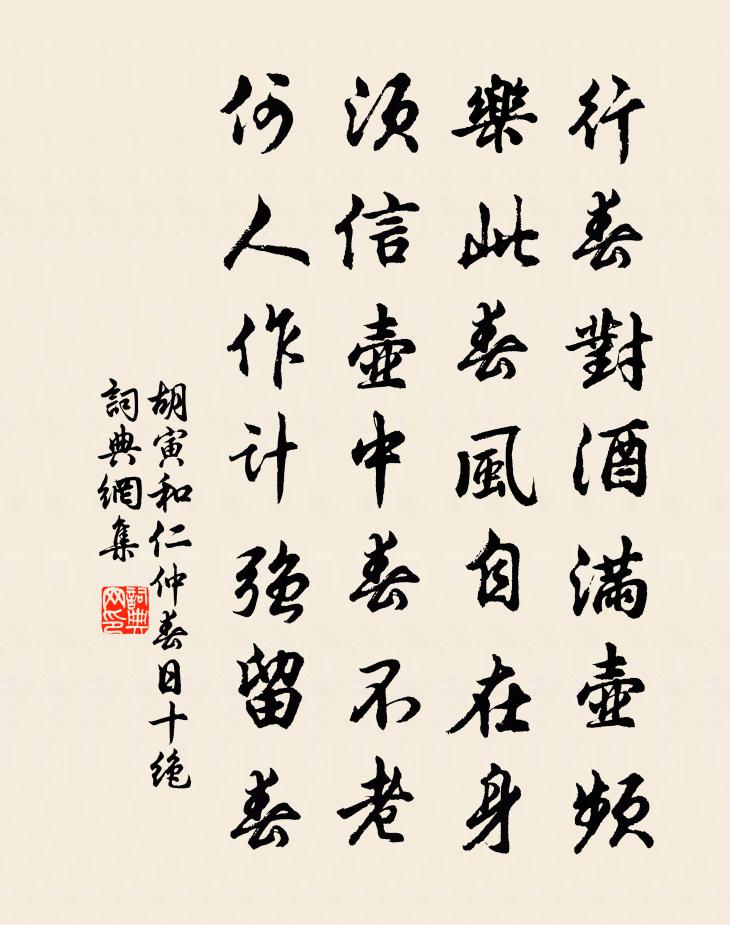 行春對酒滿壺頻
樂此春風自在身
須信壺中春不老
何人作計強留春
胡寅和仁仲春日十絶
詞典網集
詞典網印